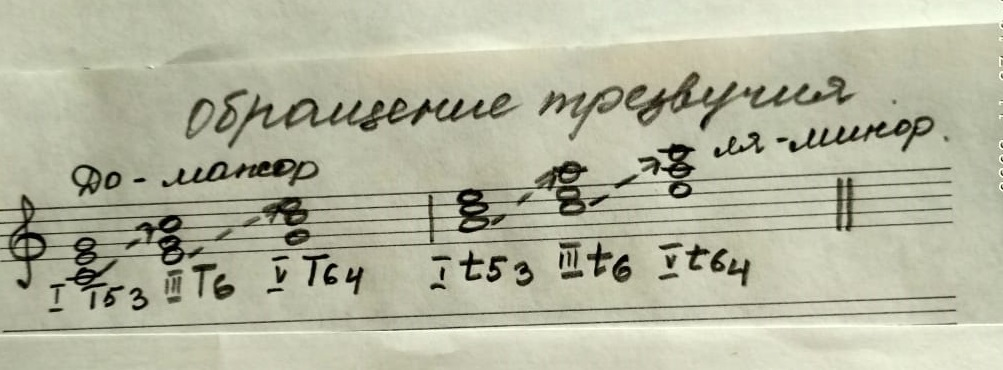 Обращение трезвучия
До-мажор
ля-минор.
I T53 III T6 V T64 I t53 III t6 V t64